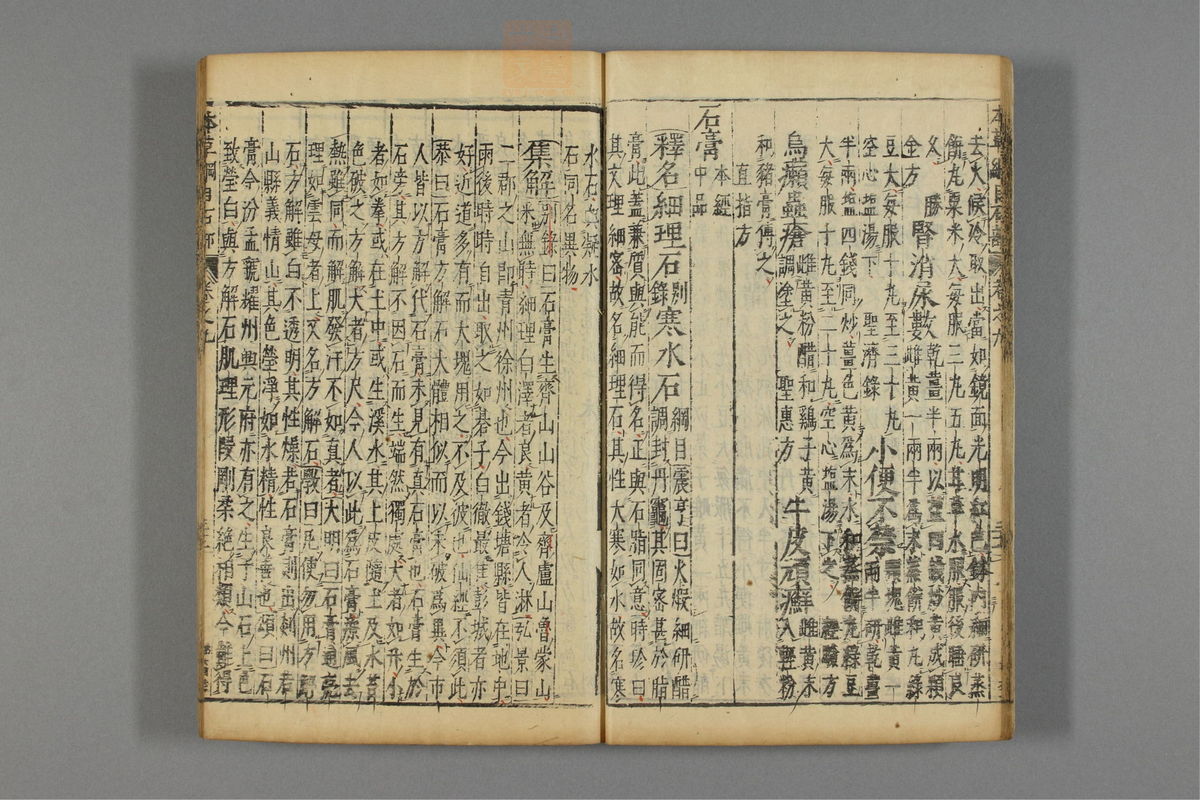 去火候冷取出當如鏡面光明紅色鉢內細研蒸
餅丸粟米大每服三丸五丸甘草水服服後睡良
久 勝金方 腎消尿數 乾薑半兩以
豆大每服十丸至三十丸
空心鹽湯下 聖濟錄 小便不禁 兩半研乾薑
半兩塩四錢同炒薑色黃為末水和蒸餅丸綠豆
大每服十丸至二十丸空心塩湯下之 經驗方
烏癩蟲瘡 雌黃粉醋和雞子黃調塗之 聖惠方 牛皮頑癬 雌黃末入輕粉
和豬膏傅之
直指方
石膏 本經中品
釋名 細理石 別錄 寒水石 綱目震亨曰火煅細研醋調封丹竈其固密甚於脂
膏此蓋兼質與能而得名正與石脂同意時珍曰
其文理細密故名細理石其性大寒如水故名寒
水石與凝水
石同名異物
集解 別錄曰石膏生齊山山谷及齊盧山魯蒙山采無時細理白澤者良黃者令人淋弘景曰
二郡之山即青州徐州也今出錢塘縣皆在地中
雨後時時自出取之如棊子白徹最佳彭城者亦
好近道多有而大塊用之不及彼也仙經不須此
恭曰石膏方解石大體相似而以未破為異今市
人皆以方解代石膏未見有真石膏也石膏生於
石旁其方解不因石而生端然獨處大者如升小
者如拳或在土中或生溪水其上皮隨土及水苔
色破之方解大者方尺今人以此為石膏療風去
熱雖同而解肌發汗不如真者大明曰石膏通亮
理如雲母者上又名方解石斅曰凡使勿用方解
石方解雖白不透明其性燥若石膏則出剡州茗
山縣義情山其色瑩淨如水精性良善也頌曰石
膏今汾孟虢耀州興元府亦有之生于山石上色
致瑩白與方解石肌理形段剛柔絕相類今難得